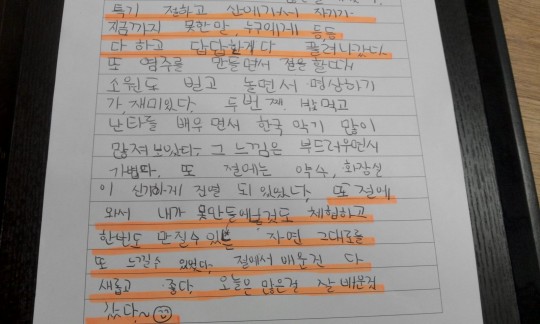 특기 정하고 산에가서 자기가
지금까지 못한만, 누구에게 등등
다 하고 답답한게 다 풀려나갔다.
또 염주를 만들면서 절을 할때
소원도 빌고 놀면서 명상하기
가 재미있다. 두번째 밥먹고
난타를 배우면서 한국 악기 많이
많져 보았다. 그 느낌은 부드러우면서
가볍다. 또 절에는 약수, 화장실
이 신기하게 진열 되 있었다. 또 절에
와서 내가 못만들에 것도 체험하고
한번도 만질수 있는 자연 그대로를
또 느낄수 있었다. 절에서 배운건 다
새롭고 좋다. 오늘은 많은걸 잘 배운것
같다~